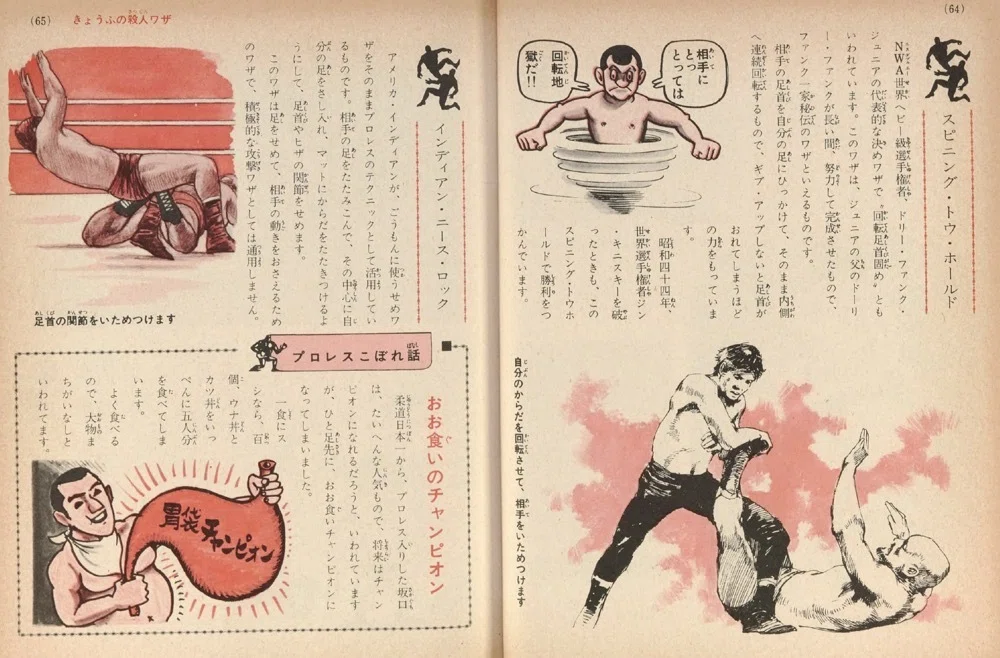 (64)
スピニング・トウ・ホールド
NWA世界ヘビー級選手権者、ドリー・ファンク・
ジュニアの代表的な決めワザで〝回転足首固め〟とも
いわれています。このワザは、ジュニアの父のドーリ
ー・ファンクが長い間、努力して完成させたもので、
ファンク一家秘伝のワザといえるものです。
相手の足首を自分の足にひっかけて、そのまま内側
へ連続回転するもので、ギブ・アップしないと足首が
おれてしまうほど
の力をもっていま
す。
昭和四十四年、
世界選手権者ジン
・キニスキーを破
ったときも、この
スピニング・トウホ
ールドで勝利をつ
かんでいます。
相手に
とっては
回転地
獄だ!!
自分のからだを回転させて、相手をいためつけます
(65)
きょうふの殺人ワザ
インディアン・ニース・ロック
アメリカ・インディアンが、ごうもんに使うせめワ
ザをそのままプロレスのテクニックとして活用してい
るものです。相手の足をたたみこんで、その中心に自
分の足をさし入れ、マットにからだをたたきつけるよ
うにして、足首やヒザの関節をせめます。
このワザは足をせめて、相手の動きをおさえるため
のワザで、積極的な攻撃ワザとしては通用しません。
足首の関節をいためつけます
プロレスこぼれ話
おお食いのチャンピオン
柔道日本一から、プロレス入りした坂口
は、たいへんな人気もので、将来はチャン
ピオンになれるだろうと、いわれています
が、ひと足先に、おお食いチャンピオンに
なってしまいました。
一食にス
シなら、百
個、ウナ丼と
カツ丼をいっ
ぺんに五人分
を食べてしま
います。
よく食べる
ので、大物ま
ちがいなしと
いわれてます。
胃袋チャンピオン